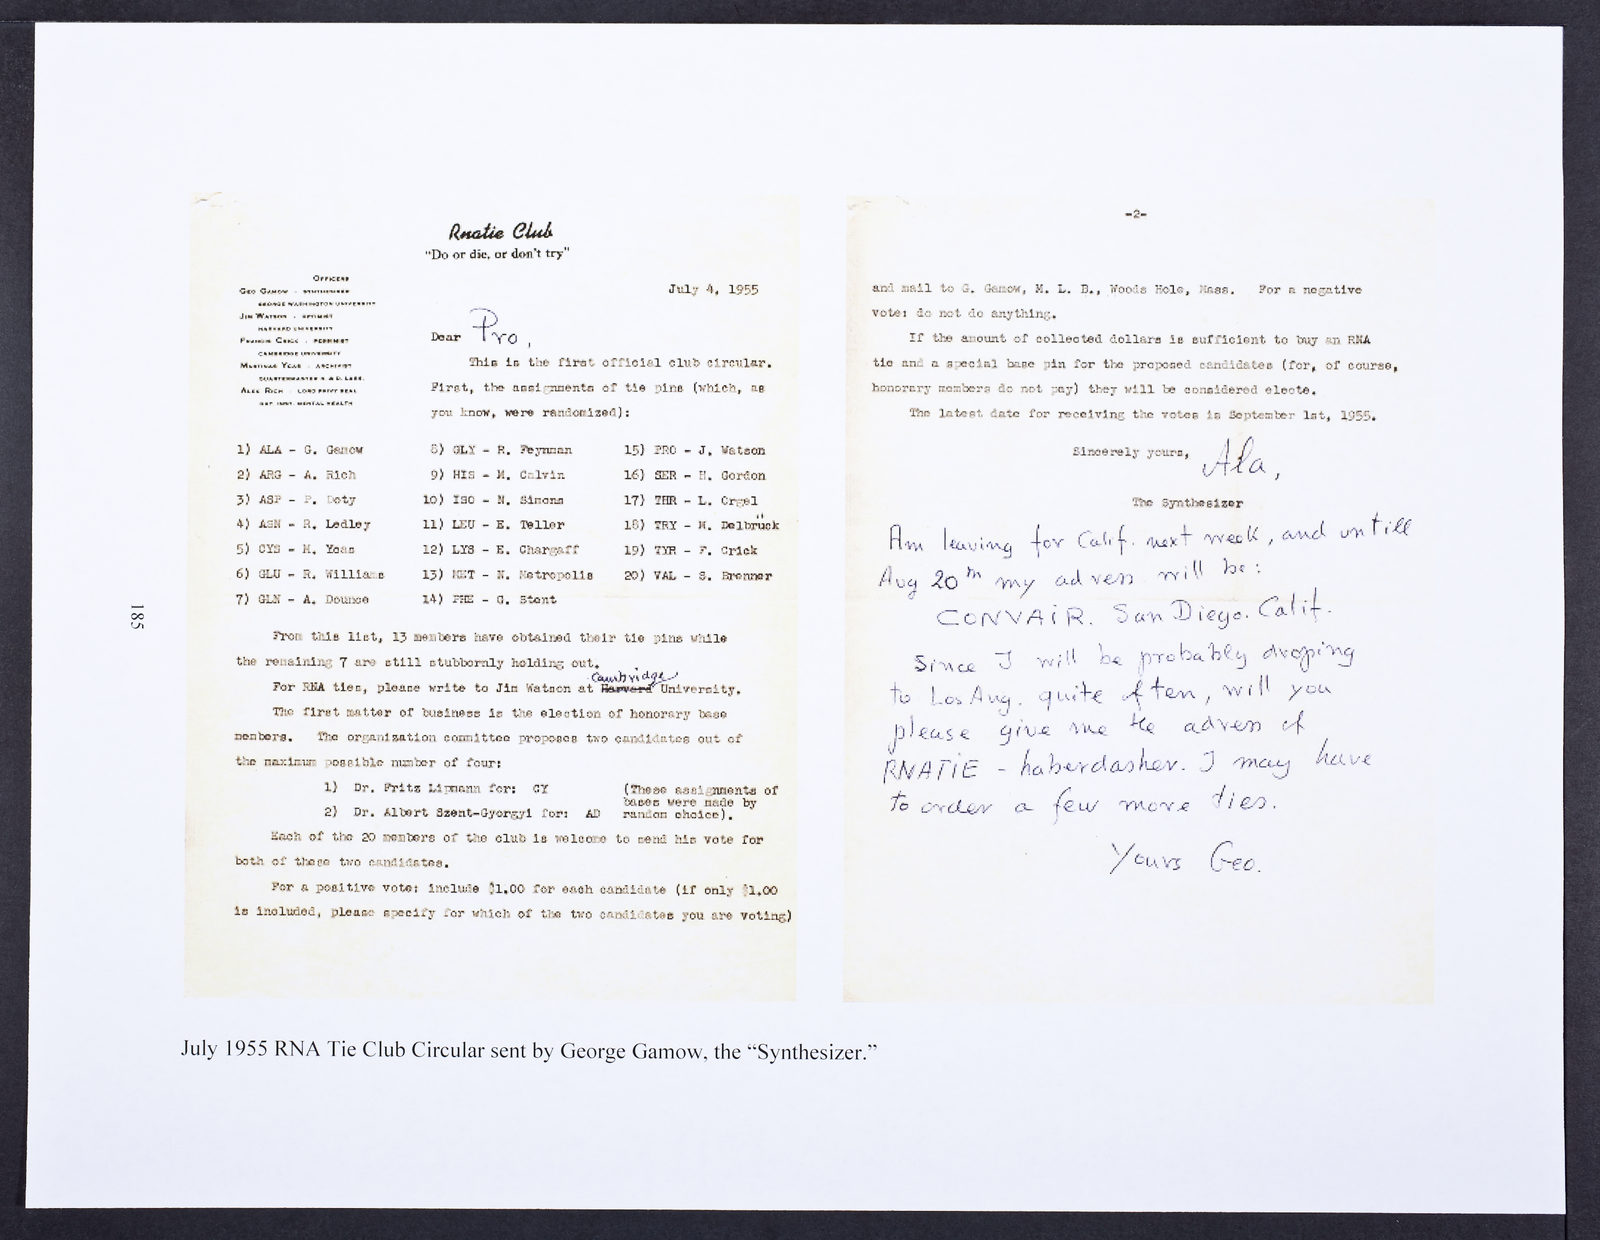 Rnatie Club
"Do or die, or don't try"
Officers
Geo Gamow - Synthesiser
George Washington University
Jim Watson - Optimist
Harvard University
Francis Crick - Pessimist
Cambridge University
Martinas Ycas - Archivist
Quartermaster R & D. Labs.
Alex Rich - Lord Privy Seal
Nat. Inst. Mental Health
July 4, 1955
Dear Pro,
This is the first official club circular.
First, the assignments of tie pins (which, as
you know, were randomized):
1) ALA - G. Gamow 8) GLY - R. Feynman 15) PRO - J. Watson
2) ARG - A. Rich 9) HIS - M. Calvin 16) SER - H. Gordon
3) ASP - P. Doty 10) ISO - N. Simons 17) THR - L. Orgel
4) ASN - R. Ledley 11) LEU - E. Teller 18) TRY - M. Delbrück
5) CYS - M. Ycas 12) LYS - E. Chargaff 19) TYR - F. Crick
6) GLU - R. Williams 13) MET - N. Metropolis 20) VAL - S. Brenner
7) GLN - A. Dounce 14) PHE - G. Stent
From this list, 13 members have obtained their tie pins while
the remaining 7 are still stubbornly holding out.
Cambridge
For RNA ties, please write to Jim Watson at Harvard University.
The first matter of business is the election of honorary base
members. The organization committee proposes two candidates out of
the maximum possible number of four:
1) Dr. Fritz Lipmann for: CY
2) Dr. Albert Szent-Gyorgyi for: AD
(These assignments of
bases were made by
random choice).
Each of the 20 members of the club is welcome to send his vote for
both of these two candidates.
For a positive vote: include $1.00 for each candidate (if only $1.00
is included, please specify for which of the two candidates you are voting)
-2-
and mail to G. Gamow, M. L. B., Woods Hole, Mass. For a negative
vote: do not do anything.
If the amount of collected dollars is sufficient to buy an RNA
tie and a special base pin for the proposed candidates (for, of course,
honorary members do not pay) they will be considered electe.
The latest date for receiving the votes is September 1st, 1955.
Sincerely yours, Ala,
The Synthesizer
Am leaving for Calif. next week, and untill
Aug 20th my adress will be:
CONVAIR. San Diego. Calif.
Since I will be probably droping
to Los Ang. quite often, will you
please give me the adress of
RNATIE - haberdasher. I may have
to order a few more ties.
Yours Geo.
185
July 1955 RNA Tie Club Circular sent by George Gamow, the "Synthesizer."